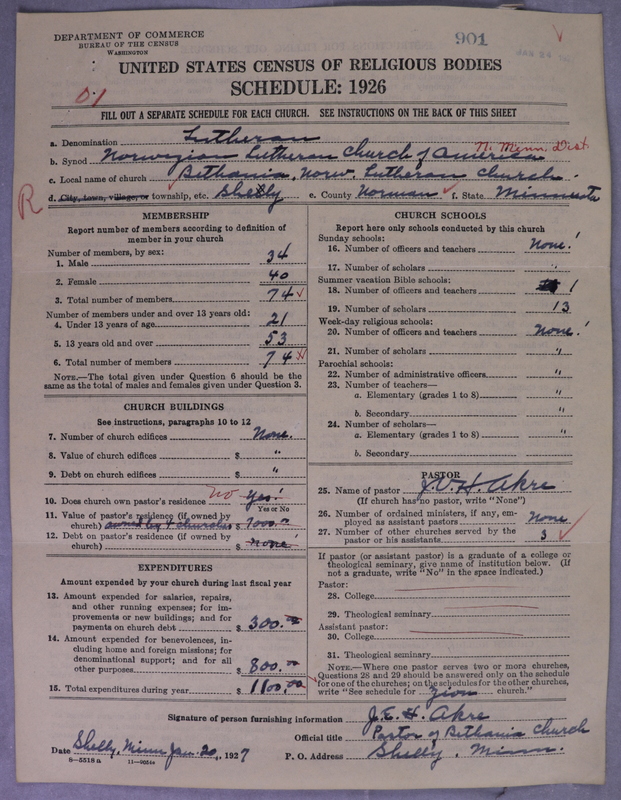 DEPARTMENT OF COMMERCE
BUREAU OF THE CENSUS
WASHINGTON
901
UNITED STATES CENSUS OF RELIGIOUS BODIES
SCHEDULE: 1926
01
FILL OUT A SEPARATE SCHEDULE FOR EACH CHURCH. SEE INSTRUCTIONS ON THE BACK OF THIS SHEET
a. Denomination Lutheran
b. Synod Norwegian Lutheran Church of America N. Minn. Dist
c. Local name of church Bethania, Norw. Lutheran Church.
R
d. City, town, village, or township, etc. Shelly e. County Norman f. State Minnesota
MEMBERSHIP
Report number of members according to definition of
member in your church
Number of members, by sex:
1. Male 34
2. Female 40
3. Total number of members 74
Number of members under and over 13 years old:
4. Under 13 years of age 21
5. 13 years old and over 53
6. Total number of members 74
NOTE.—The total given under Question 6 should be the
same as the total of males and females given under Question 3.
CHURCH BUILDINGS
See instructions, paragraphs 10 to 12
7. Number of church edifices None.
8. Value of church edifices $ "
9. Debt on church edifices $ "
10. Does church own pastor's residence no Yes!
Yes or No
11. Value of pastor's residence (if owned by
church) owned by 4 churches $ 7000.00
12. Debt on pastor's residence (if owned by
church) $ none!
EXPENDITURES
Amount expended by your church during last fiscal year
13. Amount expended for salaries, repairs,
and other running expenses; for im-
provements or new buildings; and for
payments on church debt $ 300.00
14. Amount expended for benevolences, in-
cluding home and foreign missions; for
denominational support; and for all
other purposes $ 800.00
15. Total expenditures during year $ 1100.00
CHURCH SCHOOLS
Report here only schools conducted by this church
Sunday schools:
16. Number of officers and teachers None!
17. Number of scholars "
Summer vacation Bible schools:
18. Number of officers and teachers 1
19. Number of scholars 13
Week-day religious schools:
20. Number of officers and teachers None!
21. Number of scholars "
Parochial schools:
22. Number of administrative officers "
23. Number of teachers—
a. Elementary (grades 1 to 8) "
b. Secondary "
24. Number of scholars—
a. Elementary (grades 1 to 8) "
b. Secondary "
PASTOR
25. Name of pastor H. Akre
(If church has no pastor, write "None")
26. Number of ordained ministers, if any, em-
ployed as assistant pastors None
27. Number of other churches served by the
pastor or his assistants 3
If pastor (or assistant pastor) is a graduate of a college or
theological seminary, give name of institution below. (If
not a graduate, write "No" in the space indicated.)
Pastor:
28. College
29. Theological seminary
Assistant pastor:
30. College
31. Theological seminary
NOTE.—Where one pastor serves two or more churches,
Questions 28 and 29 should be answered only on the schedule
for one of the churches; on the schedules for the other churches,
write "See schedule for Zion church."
Signature of person furnishing information J. E. H. Akre
Official title Pastor of Bethania Church
Date Shelly, Minn Jan. 20, 1927 P. O. Address Shelly, Minn.
8—5518 a